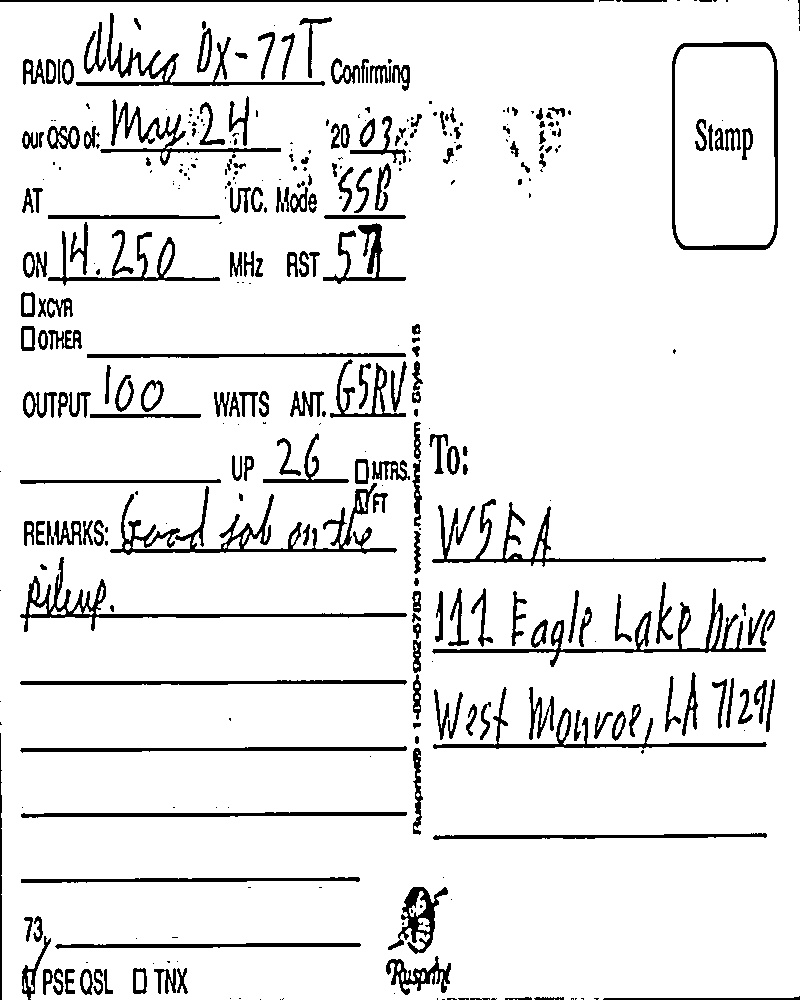 RADIO Alinco DX-77T Confirming
our QSO of: May 24 2003
AT UTC. Mode SSB
ON 14.250 MHz RST 57
XCVR
OTHER
OUTPUT 100 WATTS ANT. G5RV
UP 26 MTRS.
FT
REMARKS: Good job on the
pileup.
73,
PSE QSL TNX
Rusprint® • 1-800-962-5783 • www.rusprint.com • Style 415
Rusprint
Stamp
To:
W5EA
111 Eagle Lake Drive
West Monroe, LA 71291